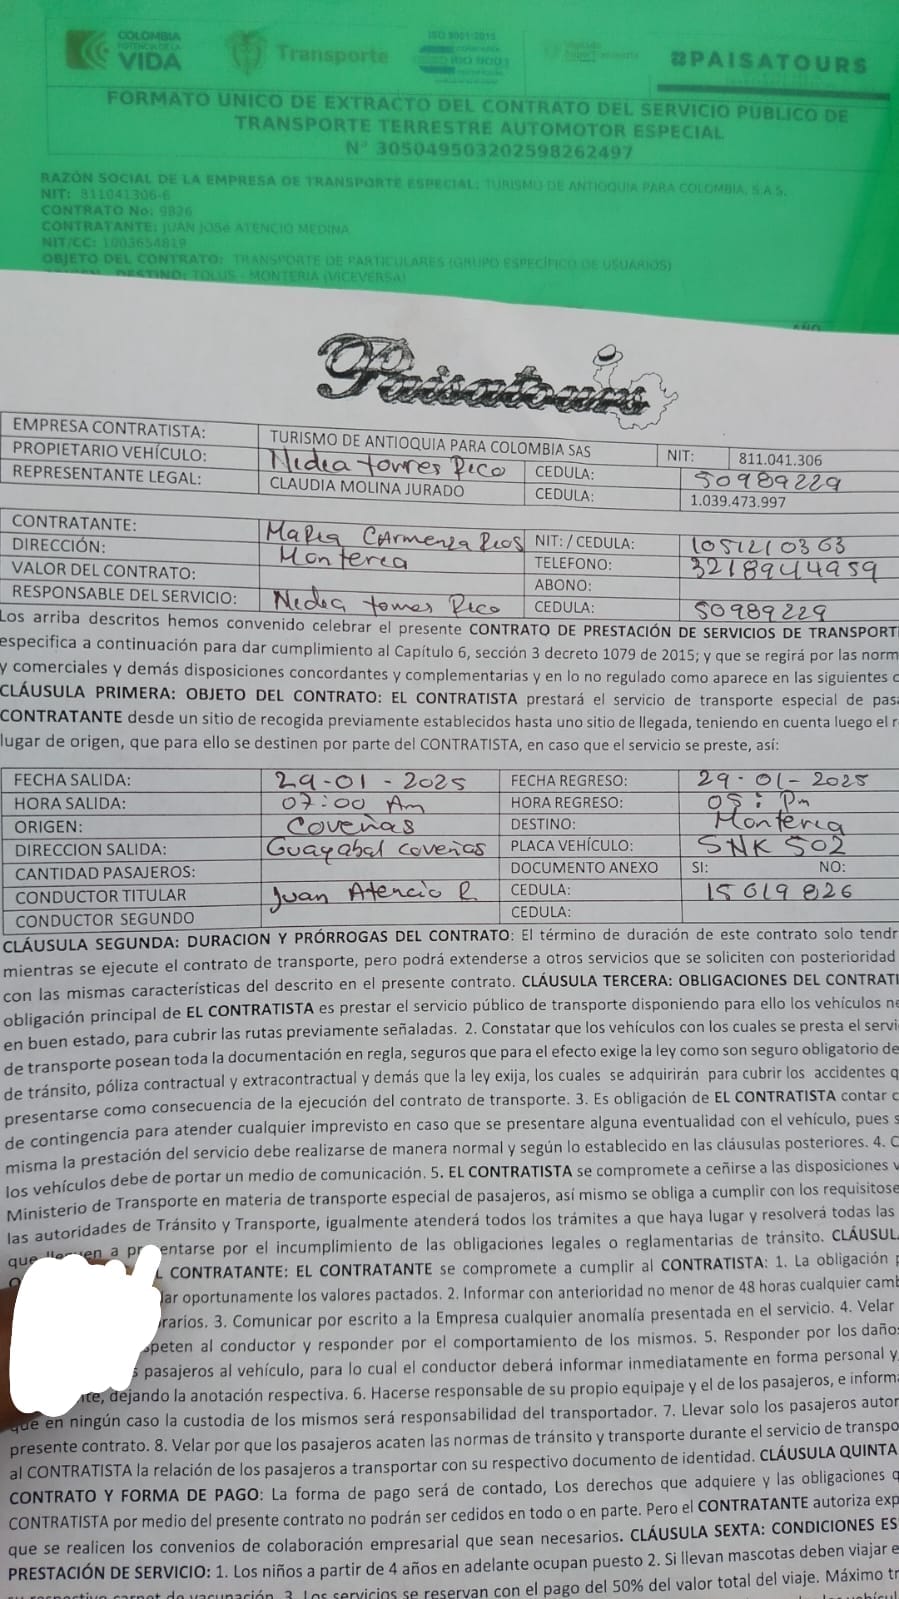 COLOMBIA
POTENCIA DE LA
VIDA
Transporte
ISO 9001:2015
PAISATOURS
FORMATO UNICO DE EXTRACTO DEL CONTRATO DEL SERVICIO PUBLICO DE
TRANSPORTE TERRESTRE AUTOMOTOR ESPECIAL
N° 305049503202598262497
RAZÓN SOCIAL DE LA EMPRESA DE TRANSPORTE ESPECIAL: TURISMO DE ANTIOQUIA PARA COLOMBIA, S.A.S.
NIT: 811041306-6
CONTRATO No: 9826
CONTRATANTE: JUAN JOSé ATENCIO MEDINA
NIT/CC: 1003654819
OBJETO DEL CONTRATO: TRANSPORTE DE PARTICULARES (GRUPO ESPECÍFICO DE USUARIOS)
DESTINO: TOLUS - MONTERIA (VICEVERSA)
AÑO
Paisatours
EMPRESA CONTRATISTA: TURISMO DE ANTIOQUIA PARA COLOMBIA SAS NIT: 811.041.306
PROPIETARIO VEHÍCULO: Nidia torres Rico CEDULA: 50989229
REPRESENTANTE LEGAL: CLAUDIA MOLINA JURADO CEDULA: 1.039.473.997
CONTRATANTE: Maria CArmenza Rios NIT: / CEDULA: 1051210363
DIRECCIÓN: Monteria TELEFONO: 3218944959
VALOR DEL CONTRATO: ABONO:
RESPONSABLE DEL SERVICIO: Nidia torres Rico CEDULA: 50989229
Los arriba descritos hemos convenido celebrar el presente CONTRATO DE PRESTACIÓN DE SERVICIOS DE TRANSPORT
especifica a continuación para dar cumplimiento al Capítulo 6, sección 3 decreto 1079 de 2015; y que se regirá por las norm
y comerciales y demás disposiciones concordantes y complementarias y en lo no regulado como aparece en las siguientes c
CLÁUSULA PRIMERA: OBJETO DEL CONTRATO: EL CONTRATISTA prestará el servicio de transporte especial de pasa
CONTRATANTE desde un sitio de recogida previamente establecidos hasta uno sitio de llegada, teniendo en cuenta luego el r
lugar de origen, que para ello se destinen por parte del CONTRATISTA, en caso que el servicio se preste, así:
FECHA SALIDA: 29-01-2025 FECHA REGRESO: 29-01-2025
HORA SALIDA: 07:00 Am HORA REGRESO: 05: Pm
ORIGEN: Coveñas DESTINO: Monteria
DIRECCION SALIDA: Guayabal Coveñas PLACA VEHÍCULO: SNK 502
CANTIDAD PASAJEROS: DOCUMENTO ANEXO SI: NO:
CONDUCTOR TITULAR Juan Atencio R CEDULA: 15619826
CONDUCTOR SEGUNDO CEDULA:
CLÁUSULA SEGUNDA: DURACION Y PRÓRROGAS DEL CONTRATO: El término de duración de este contrato solo tendr
mientras se ejecute el contrato de transporte, pero podrá extenderse a otros servicios que se soliciten con posterioridad
con las mismas características del descrito en el presente contrato. CLÁUSULA TERCERA: OBLIGACIONES DEL CONTRATI
obligación principal de EL CONTRATISTA es prestar el servicio público de transporte disponiendo para ello los vehículos ne
en buen estado, para cubrir las rutas previamente señaladas. 2. Constatar que los vehículos con los cuales se presta el servi
de transporte posean toda la documentación en regla, seguros que para el efecto exige la ley como son seguro obligatorio de
de tránsito, póliza contractual y extracontractual y demás que la ley exija, los cuales se adquirirán para cubrir los accidentes q
presentarse como consecuencia de la ejecución del contrato de transporte. 3. Es obligación de EL CONTRATISTA contar c
de contingencia para atender cualquier imprevisto en caso que se presentare alguna eventualidad con el vehículo, pues s
misma la prestación del servicio debe realizarse de manera normal y según lo establecido en las cláusulas posteriores. 4. C
los vehículos debe de portar un medio de comunicación. 5. EL CONTRATISTA se compromete a ceñirse a las disposiciones v
Ministerio de Transporte en materia de transporte especial de pasajeros, así mismo se obliga a cumplir con los requisitose
las autoridades de Tránsito y Transporte, igualmente atenderá todos los trámites a que haya lugar y resolverá todas las
que lleguen a presentarse por el incumplimiento de las obligaciones legales o reglamentarias de tránsito. CLÁUSUL
L CONTRATANTE: EL CONTRATANTE se compromete a cumplir al CONTRATISTA: 1. La obligación p
ar oportunamente los valores pactados. 2. Informar con anterioridad no menor de 48 horas cualquier camb
rarios. 3. Comunicar por escrito a la Empresa cualquier anomalía presentada en el servicio. 4. Velar
speten al conductor y responder por el comportamiento de los mismos. 5. Responder por los daño
s pasajeros al vehículo, para lo cual el conductor deberá informar inmediatamente en forma personal y
te, dejando la anotación respectiva. 6. Hacerse responsable de su propio equipaje y el de los pasajeros, e informa
que en ningún caso la custodia de los mismos será responsabilidad del transportador. 7. Llevar solo los pasajeros autor
presente contrato. 8. Velar por que los pasajeros acaten las normas de tránsito y transporte durante el servicio de transpo
al CONTRATISTA la relación de los pasajeros a transportar con su respectivo documento de identidad. CLÁUSULA QUINTA
CONTRATO Y FORMA DE PAGO: La forma de pago será de contado, Los derechos que adquiere y las obligaciones q
CONTRATISTA por medio del presente contrato no podrán ser cedidos en todo o en parte. Pero el CONTRATANTE autoriza exp
que se realicen los convenios de colaboración empresarial que sean necesarios. CLÁUSULA SEXTA: CONDICIONES ES
PRESTACIÓN DE SERVICIO: 1. Los niños a partir de 4 años en adelante ocupan puesto 2. Si llevan mascotas deben viajar e
su respectivo carnet de vacunación. 3. Los servicios se reservan con el pago del 50% del valor total del viaje. Máximo tr